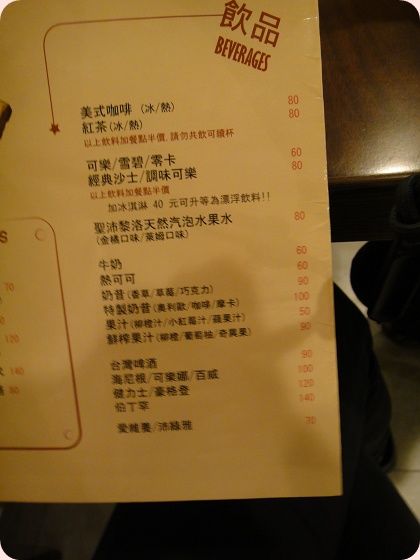 飲品
BEVERAGES
美式咖啡 (冰/熱) 80
紅茶(冰/熱) 80
以上飲料加餐點半價,請勿共飲可續杯
可樂/雪碧/零卡 60
經典沙士/調味可樂 80
以上飲料加餐點半價
加冰淇淋 40 元可升等為漂浮飲料!!
聖沛黎洛天然汽泡水果水 80
(金橘口味/萊姆口味)
牛奶 60
熱可可 60
奶昔(香草/草莓/巧克力) 90
特製奶昔(奧利歐/咖啡/摩卡) 100
果汁(柳橙汁/小紅莓汁/蘋果汁) 50
鮮榨果汁(柳橙/葡萄柚/奇異果) 90
台灣啤酒 90
海尼根/可樂娜/百威 100
健力士/豪格登 120
伯丁罕 140
愛維養/沛綠雅 70
S
70
120
140
80